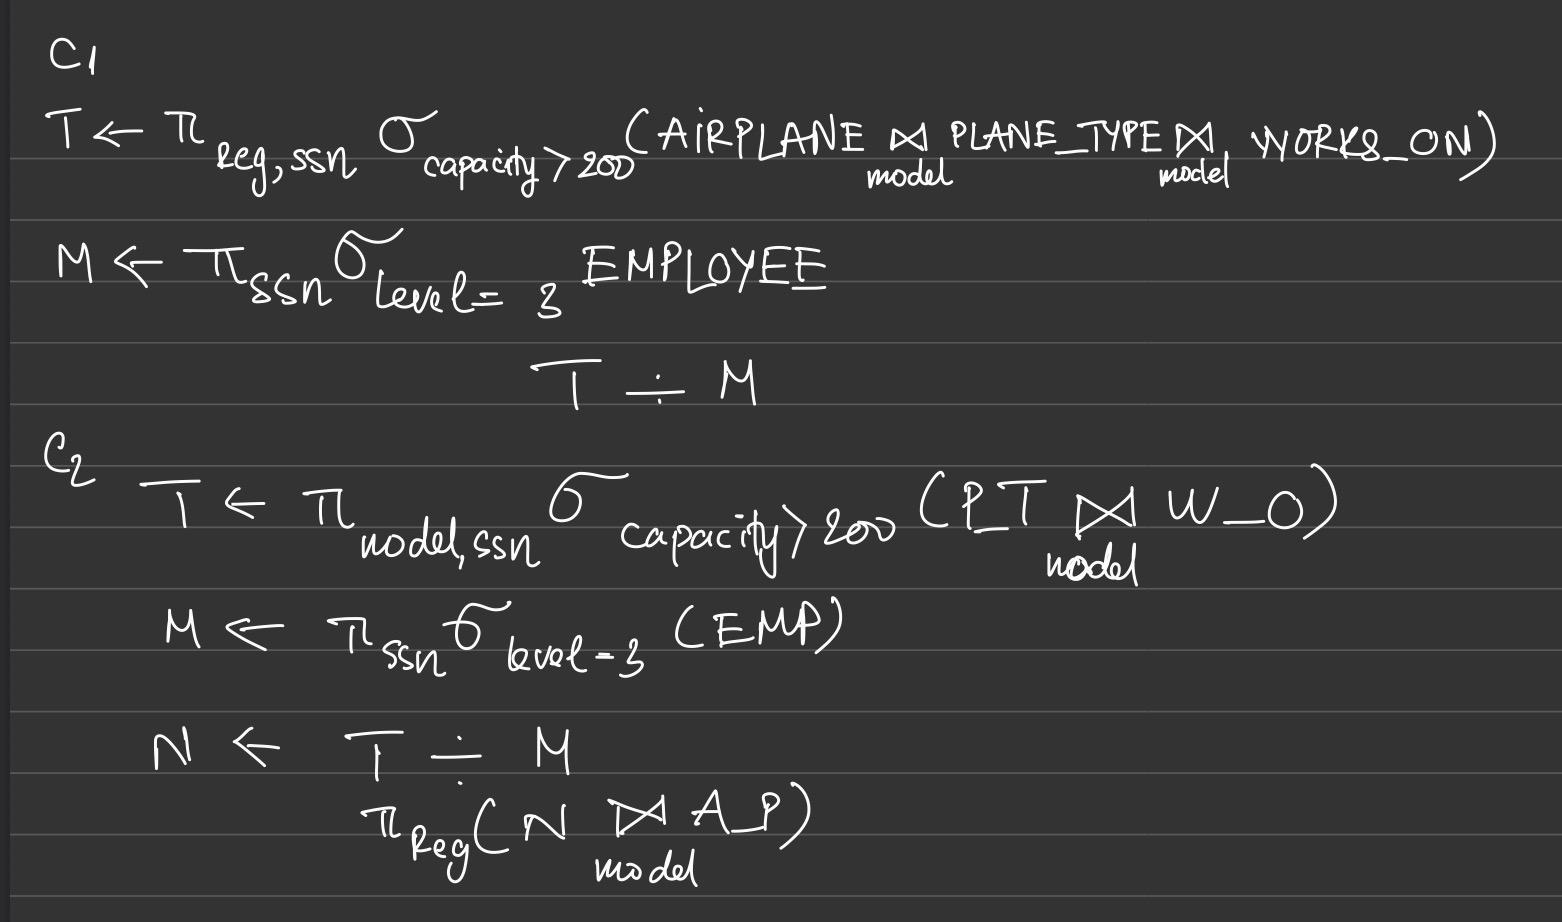 C1
T ← π Reg, ssn σ capacity > 200 (AIRPLANE ⋈ model PLANE_TYPE ⋈ model WORKS_ON)
M ← π ssn σ Level = 3 EMPLOYEE
T ÷ M
C2
T ← π model, ssn σ capacity > 200 (P_T ⋈ model W_O)
M ← π ssn σ level = 3 (EMP)
N ← T ÷ M
π Reg (N ⋈ model A_P)